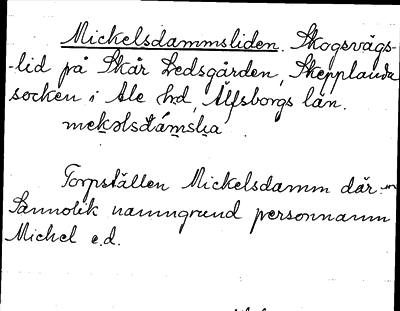 Mickelsdammsliden. Skogsvägs-
-lid på Skår Ledsgården, Skepplanda
socken i Ale hd, Älfsborgs län.
Torpställen Mickelsdamm där
Sannolik namngrund personnamn
Michel e.d.